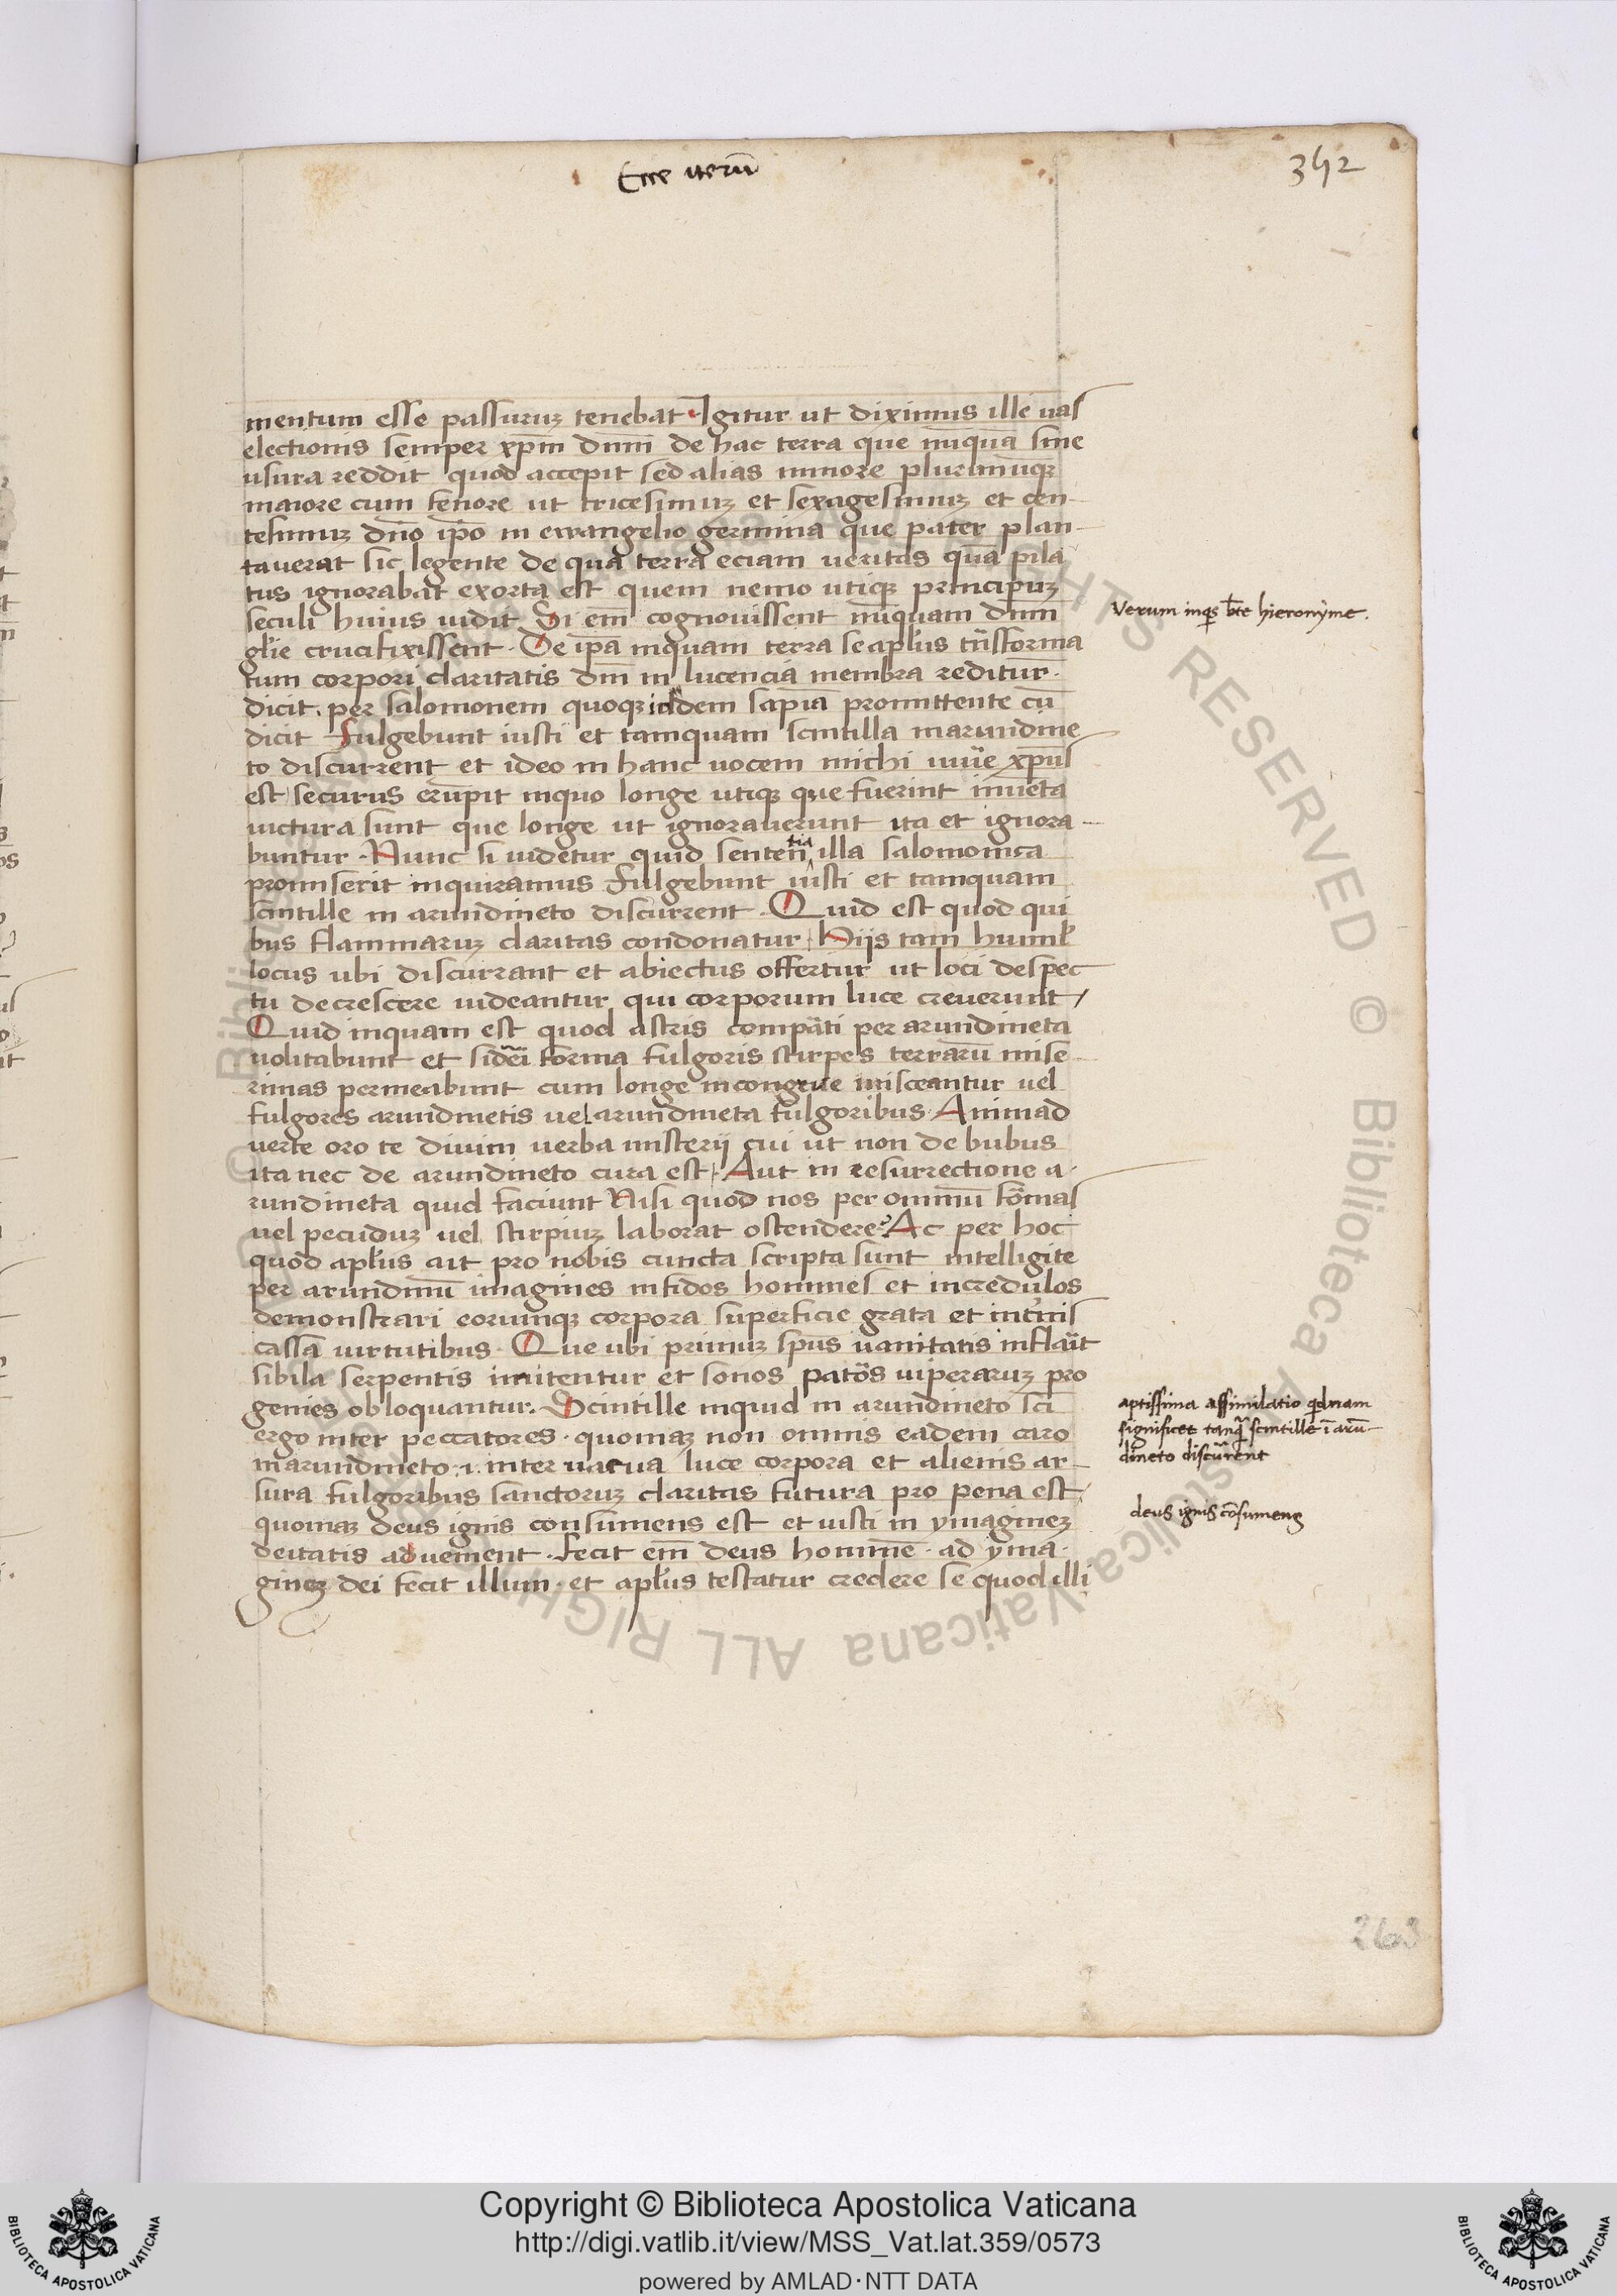 Ecce iterū
342
mentum esse passuruꝫ tenebat · Igitur ut diximus ille uas
electionis semper xp̄m dnm̄ de hac terra que nūquā sine
usura reddit quod accepit sed alias minore plurimūqꝫ
maiore cum fenore ut tricesimuꝫ et sexagesimuꝫ et cen-
tesimuꝫ dno᷒ ip̄o in ewangelio germina que pater plan-
tauerat sic legente de qua terra eciam ueritas quā pila
tus ignorabat exorta est quem nemo utiqꝫ principuꝫ
seculi huius uidit Si em̄ cognouissent nūquam dnm̄
gl̄ie crucifixissent · De ip̄a inquam terra se apl̄us trn̄sforma
tum corpori claritatis dn̄i in lucenciā membra redituꝝ̄ ·
dicit · per salomonem quoqꝫ idem sapīa promittente cū
dicit fulgebunt iusti et tamquam scintilla inarundine
to discurrent et ideo in hanc uocem michi uiu̅e xp̄us
est securus erupit inquo longe utiqꝫ que fuerint inuēta
uictura sunt que longe ut ignorauerunt ita et ignora-
buntur · Nunc si uidetur quid sententia illa salomonica
promiserit inquiramus fulgebunt iusti et tamquam
scintille in arundineto discurrent · Quid est quod qui
bus flammaruꝫ claritas condonatur · Hijs tam humil̄
locus ubi discurrant et abiectus offertur ut loci despec
tu decrescere uideantur qui corporum luce creuerunt /
Quid inquam est quod astris compāti per arundineta
uolitabunt et siderei forma fulgoris stirpes terrarū mise-
rimas permeabunt cum longe incongrue misceantur uel
fulgores arundinetis uel arundineta fulgoribus · Animad
uerte oro te diuini uerba misterij cui ut non de bubus
ita nec de arundineto cura est · Aut in resurrectione a-
rundineta quid faciunt Nisi quod nos per omniū formas
uel pecuduꝫ uel stirpiuꝫ laborat ostendere · Ac per hoc
quod apl̄us ait pro nobis cuncta scripta sunt intelligite
per arundinū imagines infidos homines et incredulos
demonstrari eorumqꝫ corpora superficie grata et int̄nis
cassa uirtutibus · Que ubi primuꝫ sp̄us uanitatis inflau̅it
sibila serpentis imitentur et sonos patr̄os uiperaruꝫ pro
genies obloquantur · Scintille inquid in arundineto sc̄i
ergo inter peccatores · quoniaꝫ non omnis eadem caro
inarundineto ·i· inter uacua luce corpora et alienis ar-
sura fulgoribus sanctoruꝫ claritas futura pro pena est /
quoniaꝫ deus ignis consumens est et iusti in ymagineꝫ
deitatis aduenient · fecit em̄ deus hominē · ad yma-
gineꝫ dei fecit illum · et apl̄us testatur credere se quod illi
Verum inqs bt̄e hieronyme.
aptissima assimilatio qdnam
significet tanq̄ scintille ī arū-
dineto discurrent
deus ignis cōsumens
263
© Biblioteca Apostolica Vaticana ALL RIGHTS RESERVED
Copyright © Biblioteca Apostolica Vaticana
http://digi.vatlib.it/view/MSS_Vat.lat.359/0573
powered by AMLAD·NTT DATA
BIBLIOTECA APOSTOLICA VATICANA
BIBLIOTECA APOSTOLICA VATICANA